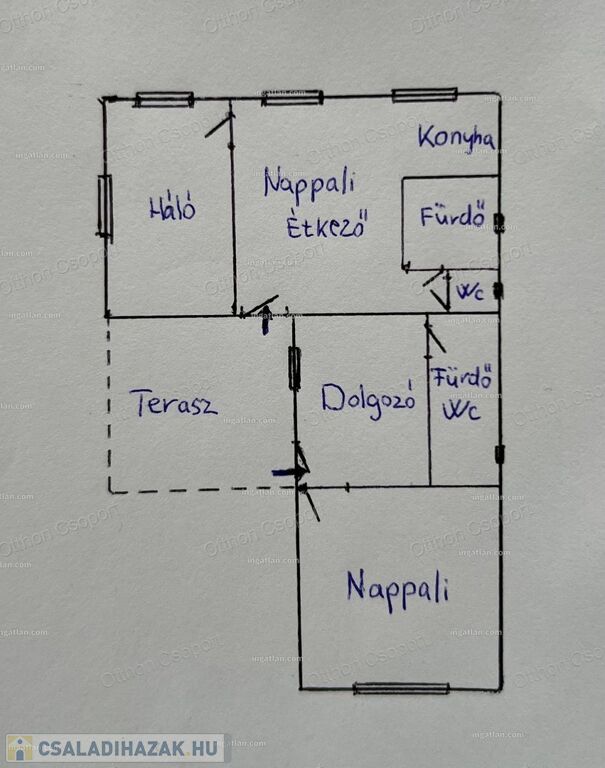 Konyha
Háló
Nappali
Étkező
Fürdő
Wc
Terasz
Dolgozó
Fürdő
Wc
Nappali
CSALADIHAZAK.HU
Otthon Csoport
ingatlan.com